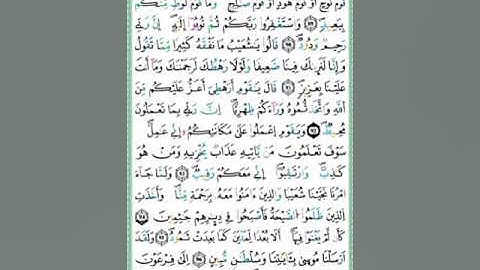 قوم نوح أو قوم هود أو قوم صلح وما قوم لوط منكم
ببعيد واستغفروا ربكم ثم توبوا إليه إن ربي
رحيم ودود قالوا يشعيب ما نفقه كثيرا مما تقول
وإنا لنريك فينا ضعيفا ولولا رهطك لرجمنك وما أنت
علينا بعزيز قال يقوم أرهطي أعز عليكم من
الله واتخذتموه وراءكم ظهريا إن ربي بما تعملون
محيط ويقوم اعملوا على مكانتكم إني عمل
سوف تعلمون من ياتيه عذاب يخزيه ومن هو
كذب وارتقبوا إني معكم رقيب ولما جاء
امرنا نجينا شعيبا والذين ءامنوا معه برحمة منا وأخذت
الذين ظلموا الصيحة فأصبحوا في ديرهم جثمين
كأن لم يغنوا فيها ألا بعدا لمدين كما بعدت ثمود ولقد
أرسلنا موسى بئايتنا وسلطن مبين إلى فرعون